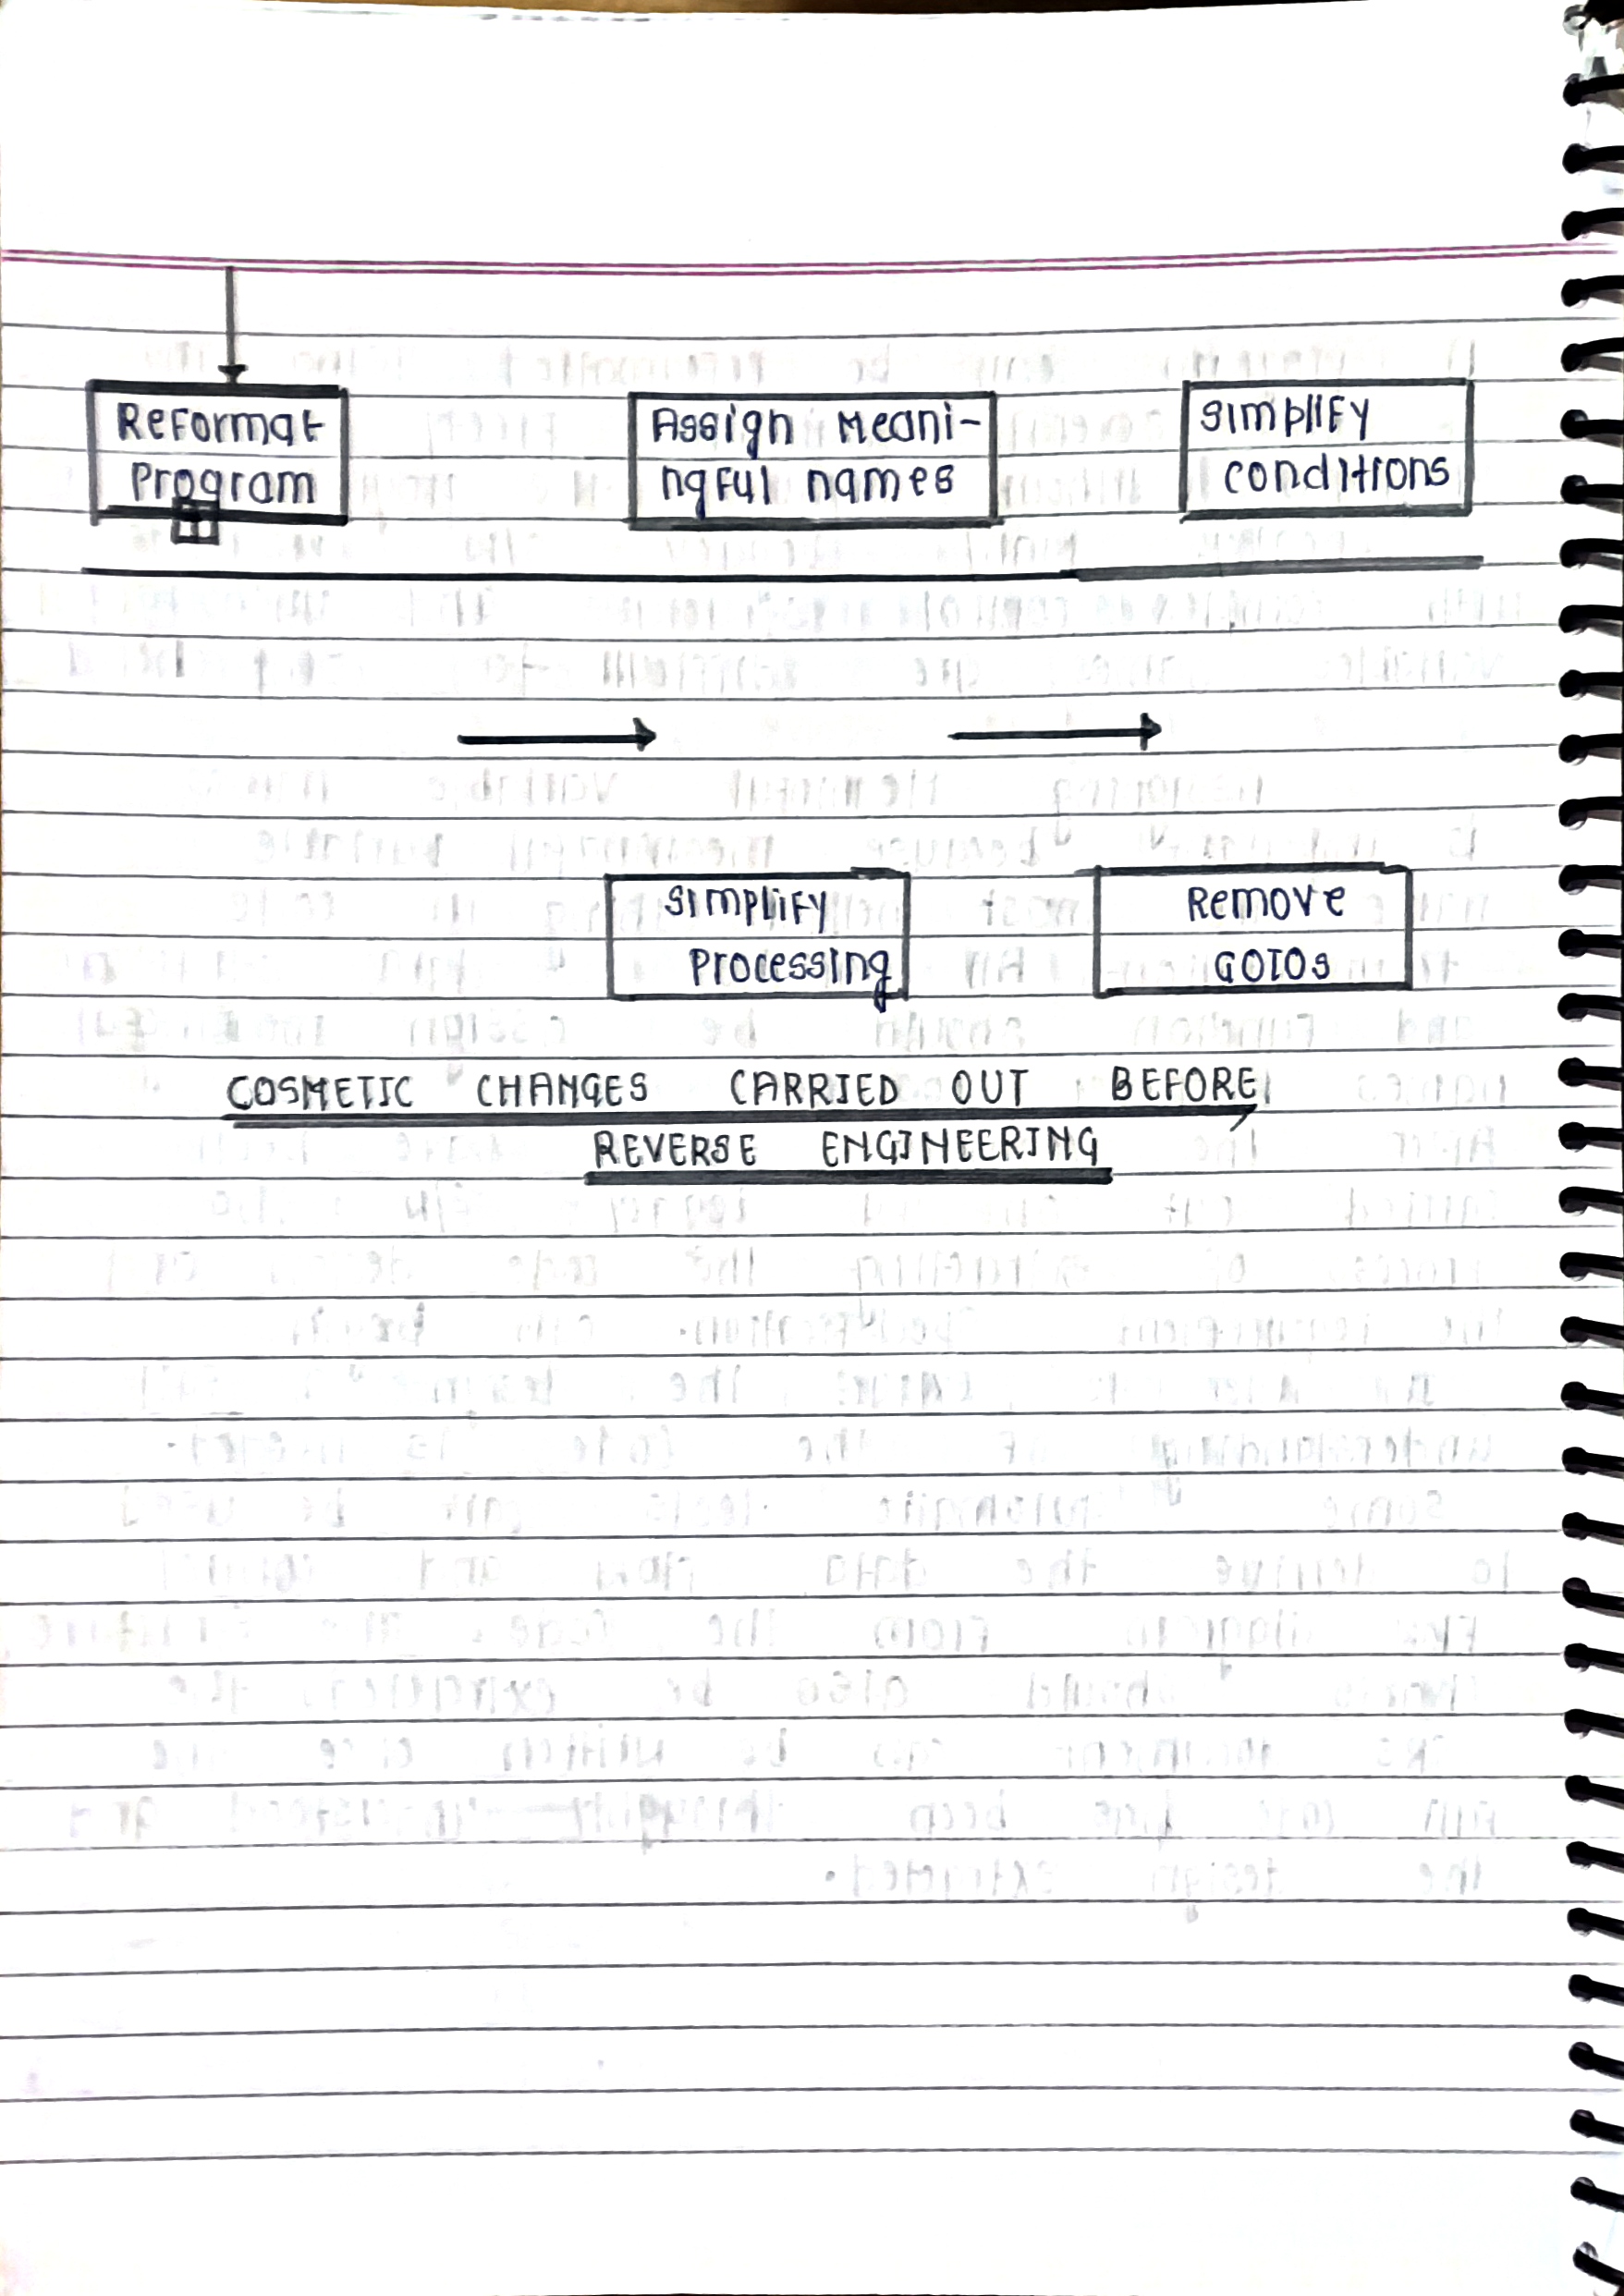 Reformat
Program
Assign Meani-
ngful names
simplify
conditions
simplify
Processing
Remove
GOTOs
COSMETIC CHANGES CARRIED OUT BEFORE
REVERSE ENGINEERING